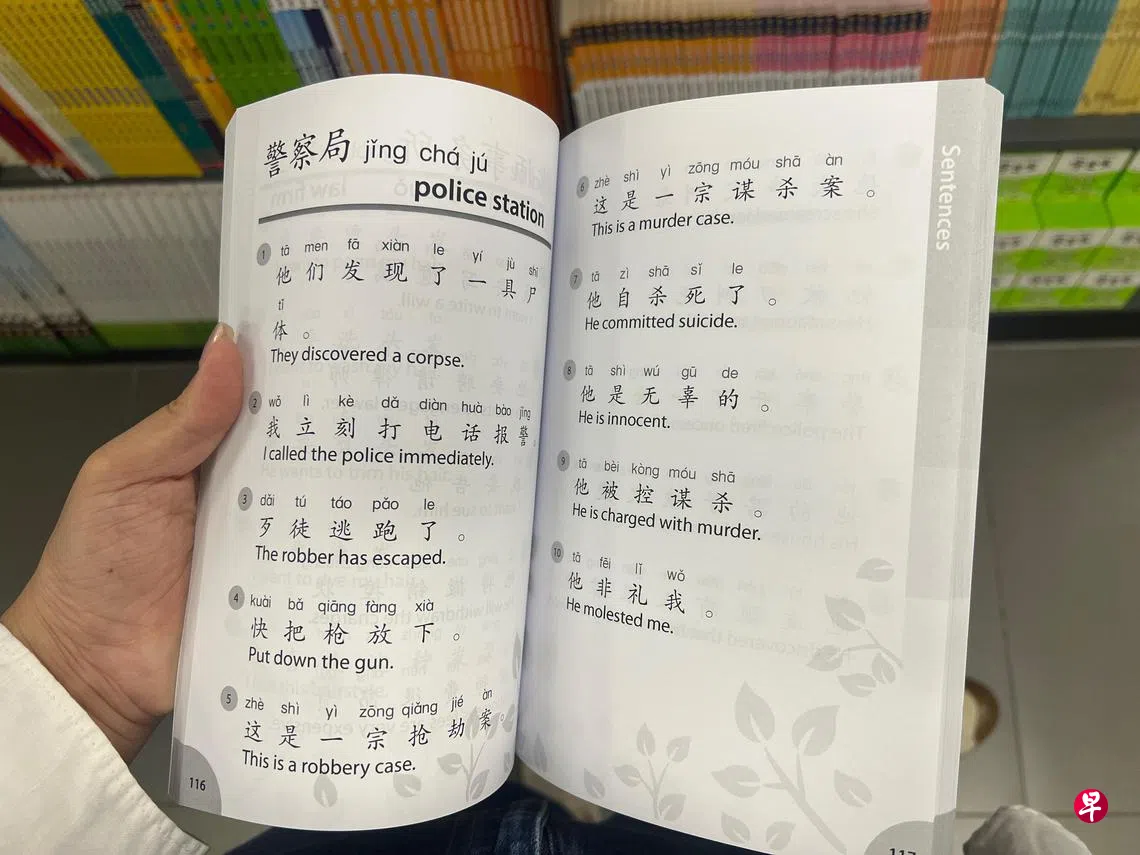 警察局 jǐng chá jú
police station
1
tā men fā xiàn le yí jù shī
他们发现了一具尸
tǐ
体。
They discovered a corpse.
2
wǒ lì kè dǎ diàn huà bào jǐng
我立刻打电话报警。
I called the police immediately.
3
dǎi tú táo pǎo le
歹徒逃跑了。
The robber has escaped.
4
kuài bǎ qiāng fàng xià
快把枪放下。
Put down the gun.
5
zhè shì yì zōng qiǎng jié àn
这是一宗抢劫案。
This is a robbery case.
116
Sentences
6
zhè shì yì zōng móu shā àn
这是一宗谋杀案。
This is a murder case.
7
tā zì shā sǐ le
他自杀死了。
He committed suicide.
8
tā shì wú gū de
他是无辜的。
He is innocent.
9
tā bèi kòng móu shā
他被控谋杀。
He is charged with murder.
10
tā fēi lǐ wǒ
他非礼我。
He molested me.
117
早